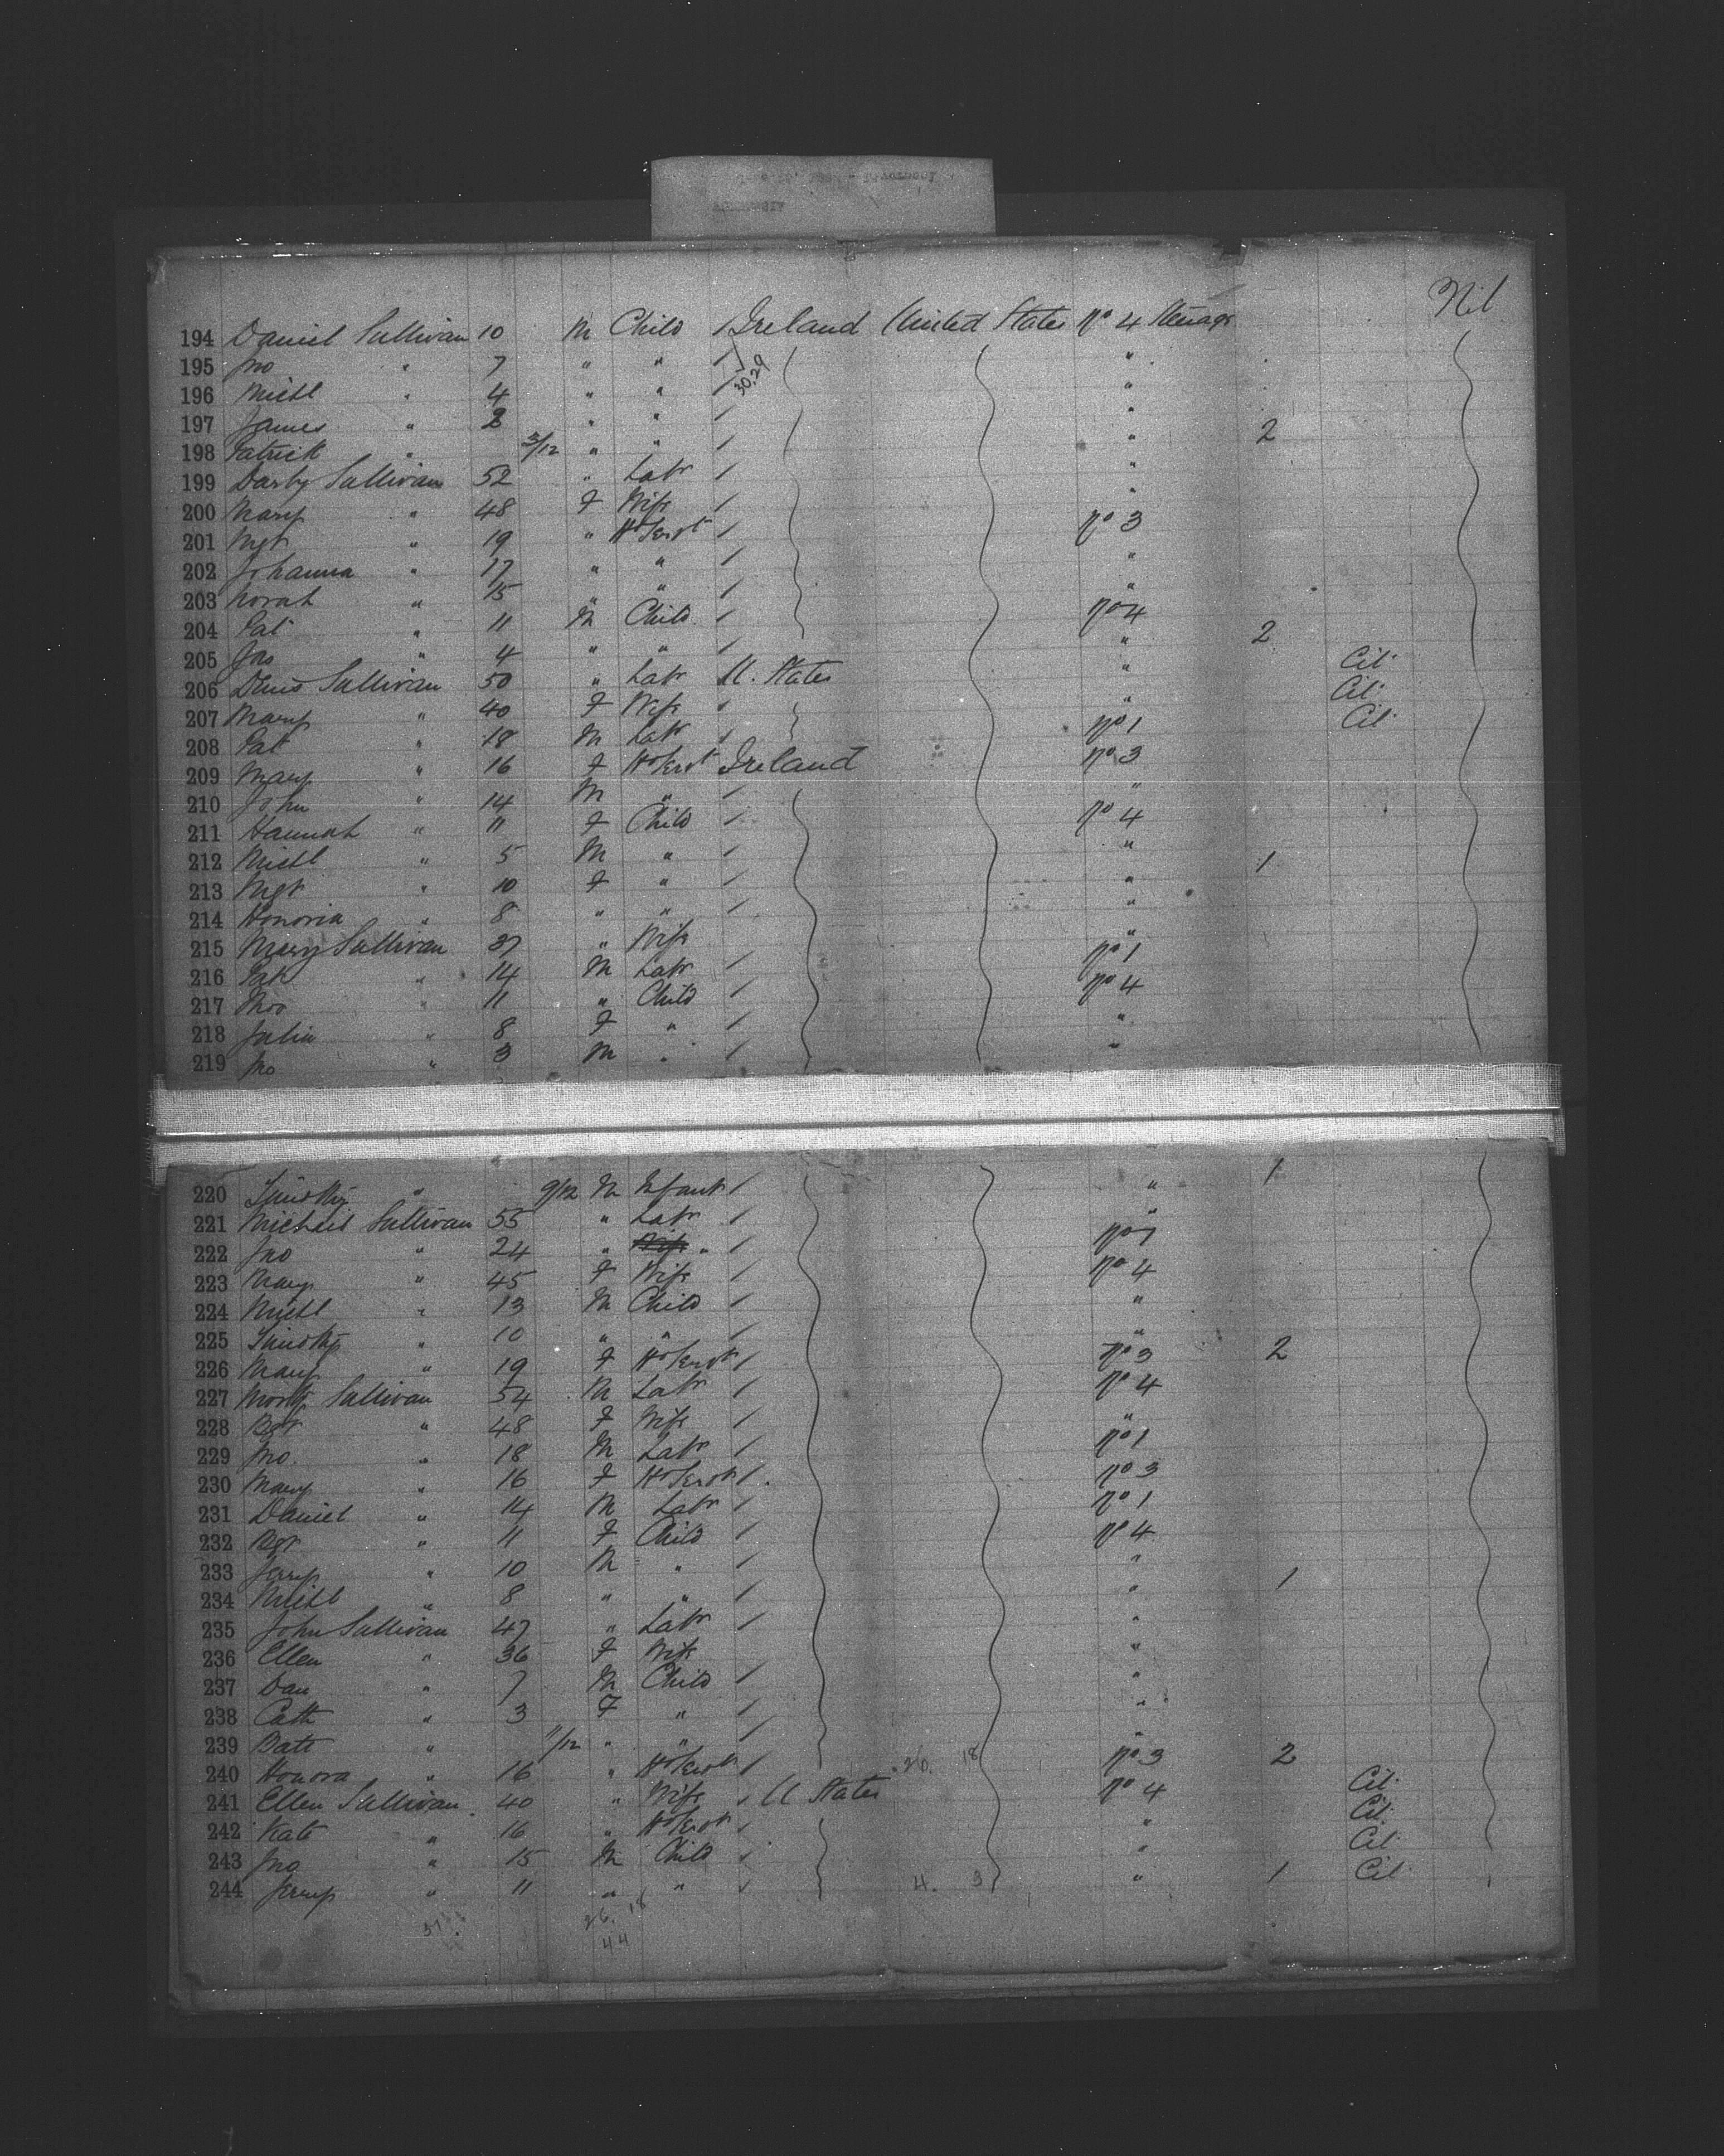 Nil
194 Daniel Sullivan 10 M Child / Ireland United States No 4 Steuage
195 Jno " 7 " " / "
30.29
196 Michl " 4 " " / "
197 James " 2 " " / " 2
198 Patrick " 3/12 " " / "
199 Darby Sullivan 52 " Labr / "
200 Mary " 48 F Wife / "
201 Mgt " 19 " Ho Servt / No 3
202 Johanna " 17 " " / "
203 Norah " 15 " " / "
204 Pat " 11 M Child / No 4 2
205 Jas " 4 " " / "
206 Denis Sullivan 50 " Labr / U. States " Cit
207 Mary " 40 F Wife / " Cit
208 Pat " 18 M Labr / No 1 Cit
209 Mary " 16 F Ho Servt Ireland No 3
210 John " 14 M " / "
211 Hannah " 11 F Child / No 4
212 Michl " 5 M " / "
213 Mgt " 10 F " / " 1
214 Honoria " 8 " " / "
215 Mary Sullivan 37 " Wife "
216 Pat " 14 M Labr / No 1
217 Thos " 11 " Child / No 4
218 Julia " 8 F " / "
219 Jno " 3 M " / "
220 Timothy " 9/12 M Infant / " 1
221 Michael Sullivan 55 " Labr / "
222 Jno " 24 " Wife " / No 1
223 Mary " 45 F Wife / No 4
224 Michl " 13 M Child / "
225 Timothy " 10 " " / "
226 Mary " 19 F Ho Servt / No 3 2
227 Morty Sullivan 54 M Labr / No 4
228 Bgt " 48 F Wife / "
229 Jno " 18 M Labr / No 1
230 Mary " 16 F Ho Servt / No 3
231 Daniel " 14 M Labr / No 1
232 Bgt " 11 F Child / No 4
233 Jerry " 10 M " / "
234 Michl " 8 " " / " 1
235 John Sullivan 47 " Labr / "
236 Ellen " 36 F Wife "
237 Dan " 7 M Child / "
238 Cath " 3 F " / "
239 Batt " 11/12 " " / "
240 Honora " 16 " Ho Servt / 26. 18 No 3 2
241 Ellen Sullivan 40 " Wife / U States No 4 Cit
242 Kate " 16 " Ho Servt / " Cit
243 Jno " 15 M Child / " Cit
244 Jerry " 11 " " / 4. 3 " 1 Cit
26. 18
44